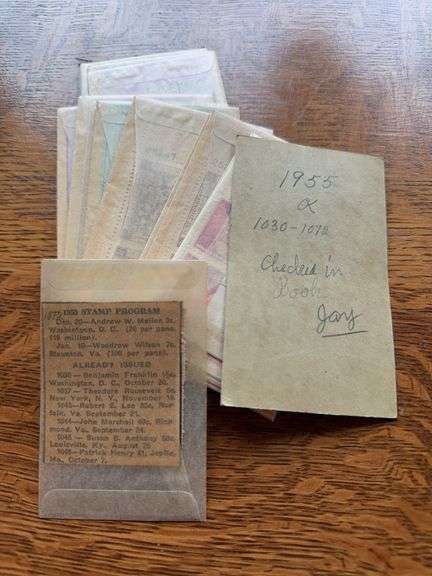 1955
&
1030-1072
Checked in
Book
Jay
1072
1955 STAMP PROGRAM
Dec. 20—Andrew W. Mellon 3c,
Washington, D. C. (26 per pane,
Jan. 10—Woodrow Wilson 7c,
Staunton, Va. (100 per pane).
ALREADY ISSUED
1030—Benjamin Franklin ½c,
Washington, D. C., October 20.
Theodore Roosevelt 6c,
New York, N. Y., November 18.
Robert E. Lee 30c, Nor-
folk, Va. September 21.
1044—John Marshall 40c, Rich-
mond, Va., September 24.
Susan B. Anthony 50c,
Louisville, Ky., August 25
Patrick Henry $1, Joplin,
Mo., October 7.